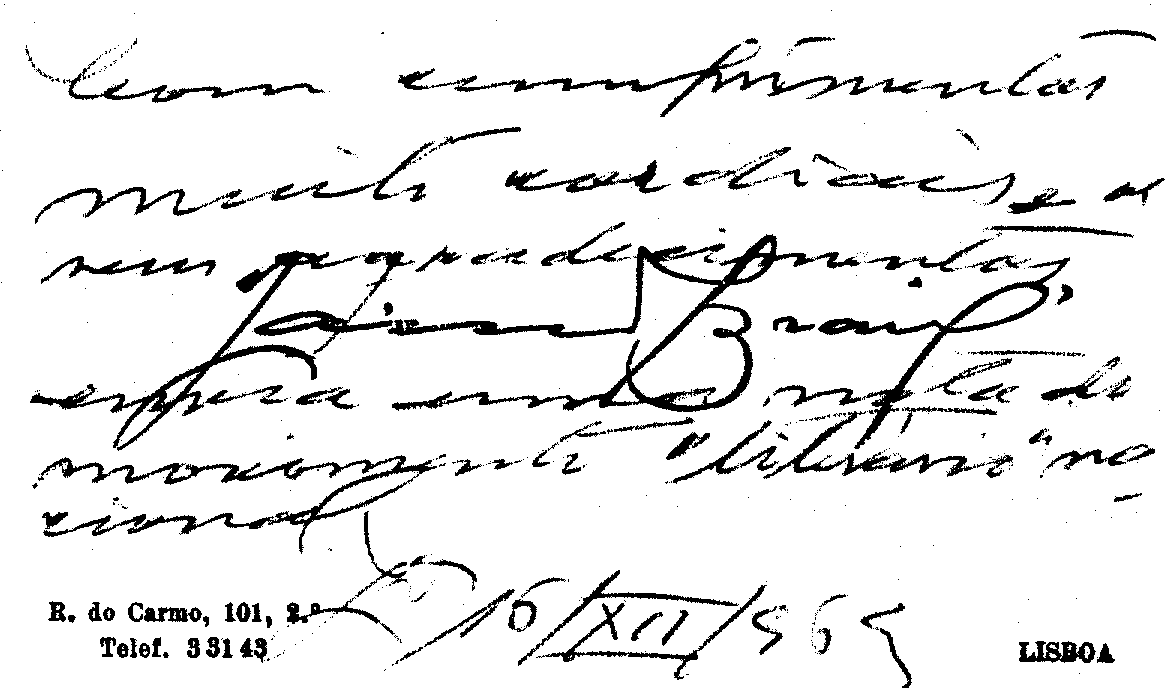 Com cumprimentos
muito cordiais e os
seus agradecimentos
Jaime Brasil
espera uma nota do
movimento "literário" na-
cional
16/XII/965
R. do Carmo, 101, 2.º
Telef. 33143
LISBOA